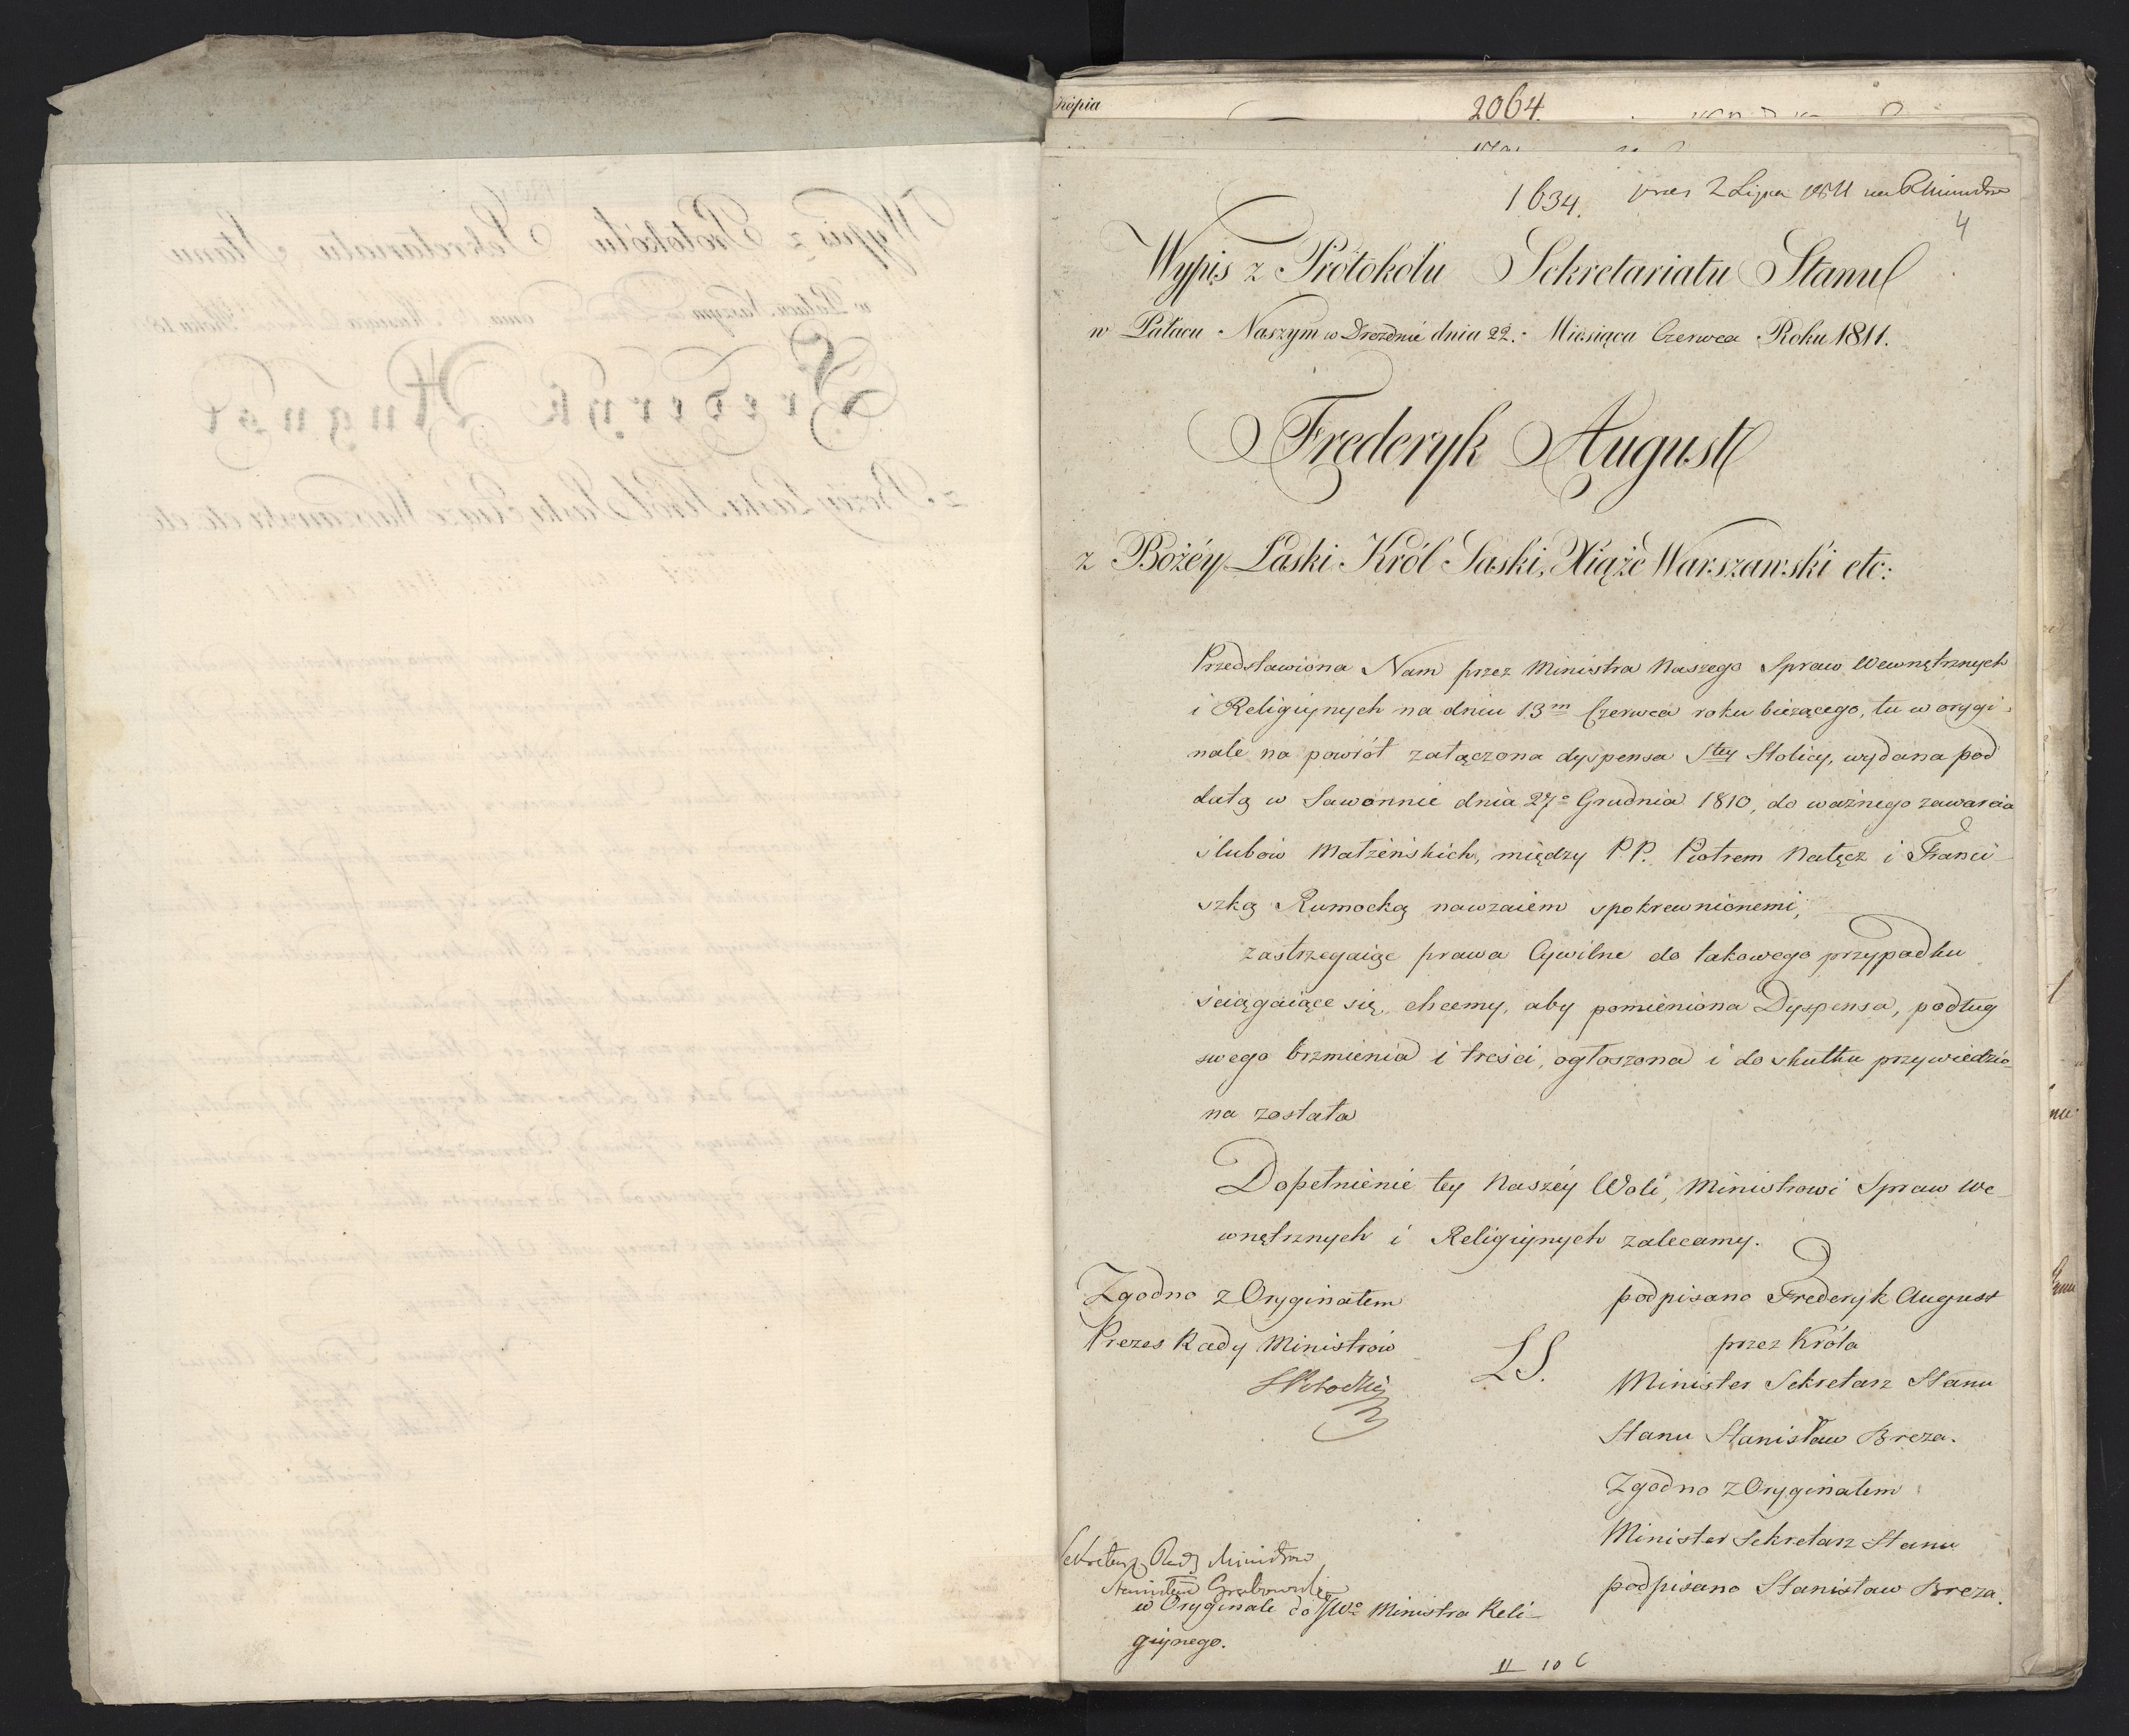 kópia
2064.
1634. 2 Lipca 1811
4
Wypis z Prótokółu Sekretariatu Stanu
w Pałacu Naszym w Dreźdnie dnia 22. Miesiąca Czerwca Roku 1811.
Frederyk August
z Bożéy Łaski Król Saski, Xiąże Warszawski etc:
Przedstawiona Nam przez Ministra Naszego Spraw Wewnętrznych
i Religiynych na dniu 13m Czerwca roku bieżącego, tu w orygi-
nale na powrót załączona dyspensa Stey Stolicy, wydana pod
datą w Sawonnie dnia 27o Grudnia 1810, do ważnego zawarcia
ślubów Małżeńskich, między P.P. Piotrem Nałęcz i Franci-
szką Rumocką nawzaiem spokrewnionemi,
zastrzegaiąc prawa Cywilne do takowego przypadku
ściągaiące się, chcemy, aby pomieniona Dyspensa, podług
swego brzmienia i treści, ogłoszona i do skutku przywiedzio-
na została
Dopełnienie tey Naszéy Woli, Ministrowi Spraw We-
wnętrznych i Religiynych zalecamy.
Zgodno z Oryginałem
Prezes Rady Ministrów
SPotocki
LS.
podpisano Frederyk August
przez Króla
Minister Sekretarz Stanu
Stanu Stanisław Breza.
Zgodno z Oryginałem
Minister Sekretarz Stanu
podpisano Stanisław Breza.
Sekretarz Rady Ministrów
Stanisław Grabowski
w Oryginale do JWo Ministra Reli-
giynego.
II 10 C